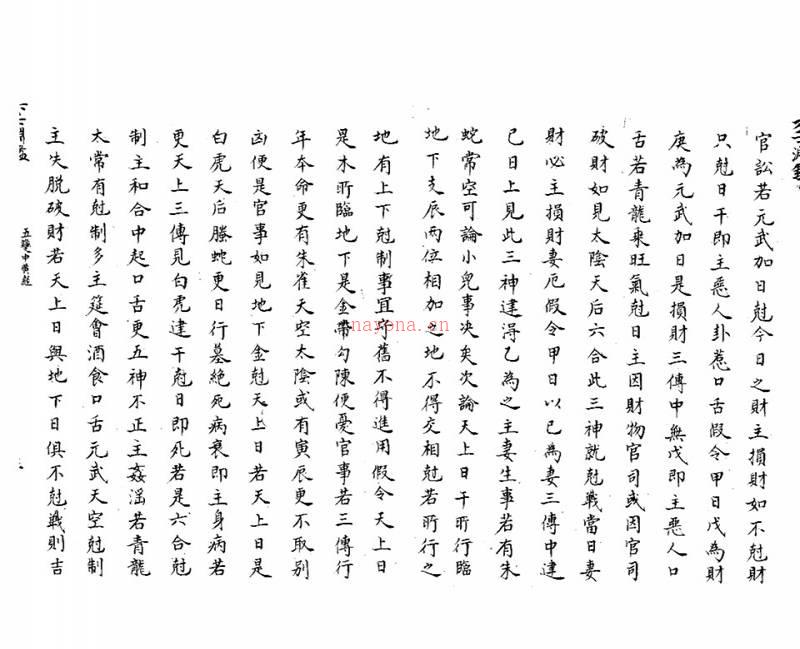 官訟若元武加日尅今日之財主損財如不尅財
只尅日干即主惡人卦惹口舌假令甲日戊為財
庚為元武加日是損財三傳中無戊即主惡人口
舌若青龍乘旺氣尅日主因財物官司或因官司
破財如見太陰天后六合此三神就尅戰當日妻
財必主損財妻厄假令甲日以己為妻三傳中逢
己日上見此三神逢淂乙為之主妻生事若有朱
蛇常空可論小兒事决矣次論天上日干所行臨
地下支辰兩位相加之地不得交相尅若所行之
地有上下尅制事宜守舊不得進用假令天上日
是木所臨地下是金帶勾陳便憂官事若三傳行
年本命更有朱雀天空太陰或有寅辰更不取别
凶便是官事如見地下金尅天上日若天上日是
白虎天后螣蛇更日行墓絶死病衰即主身病若
更天上三傳見白虎逢干尅日即死若是六合尅
制主和合中起口舌更五神不正主姦滛若青龍
太常有尅制多主筵會酒食口舌元武天空尅制
主失脱破財若天上日與地下日俱不尅戰則吉
五變中黄經
nayona.cn